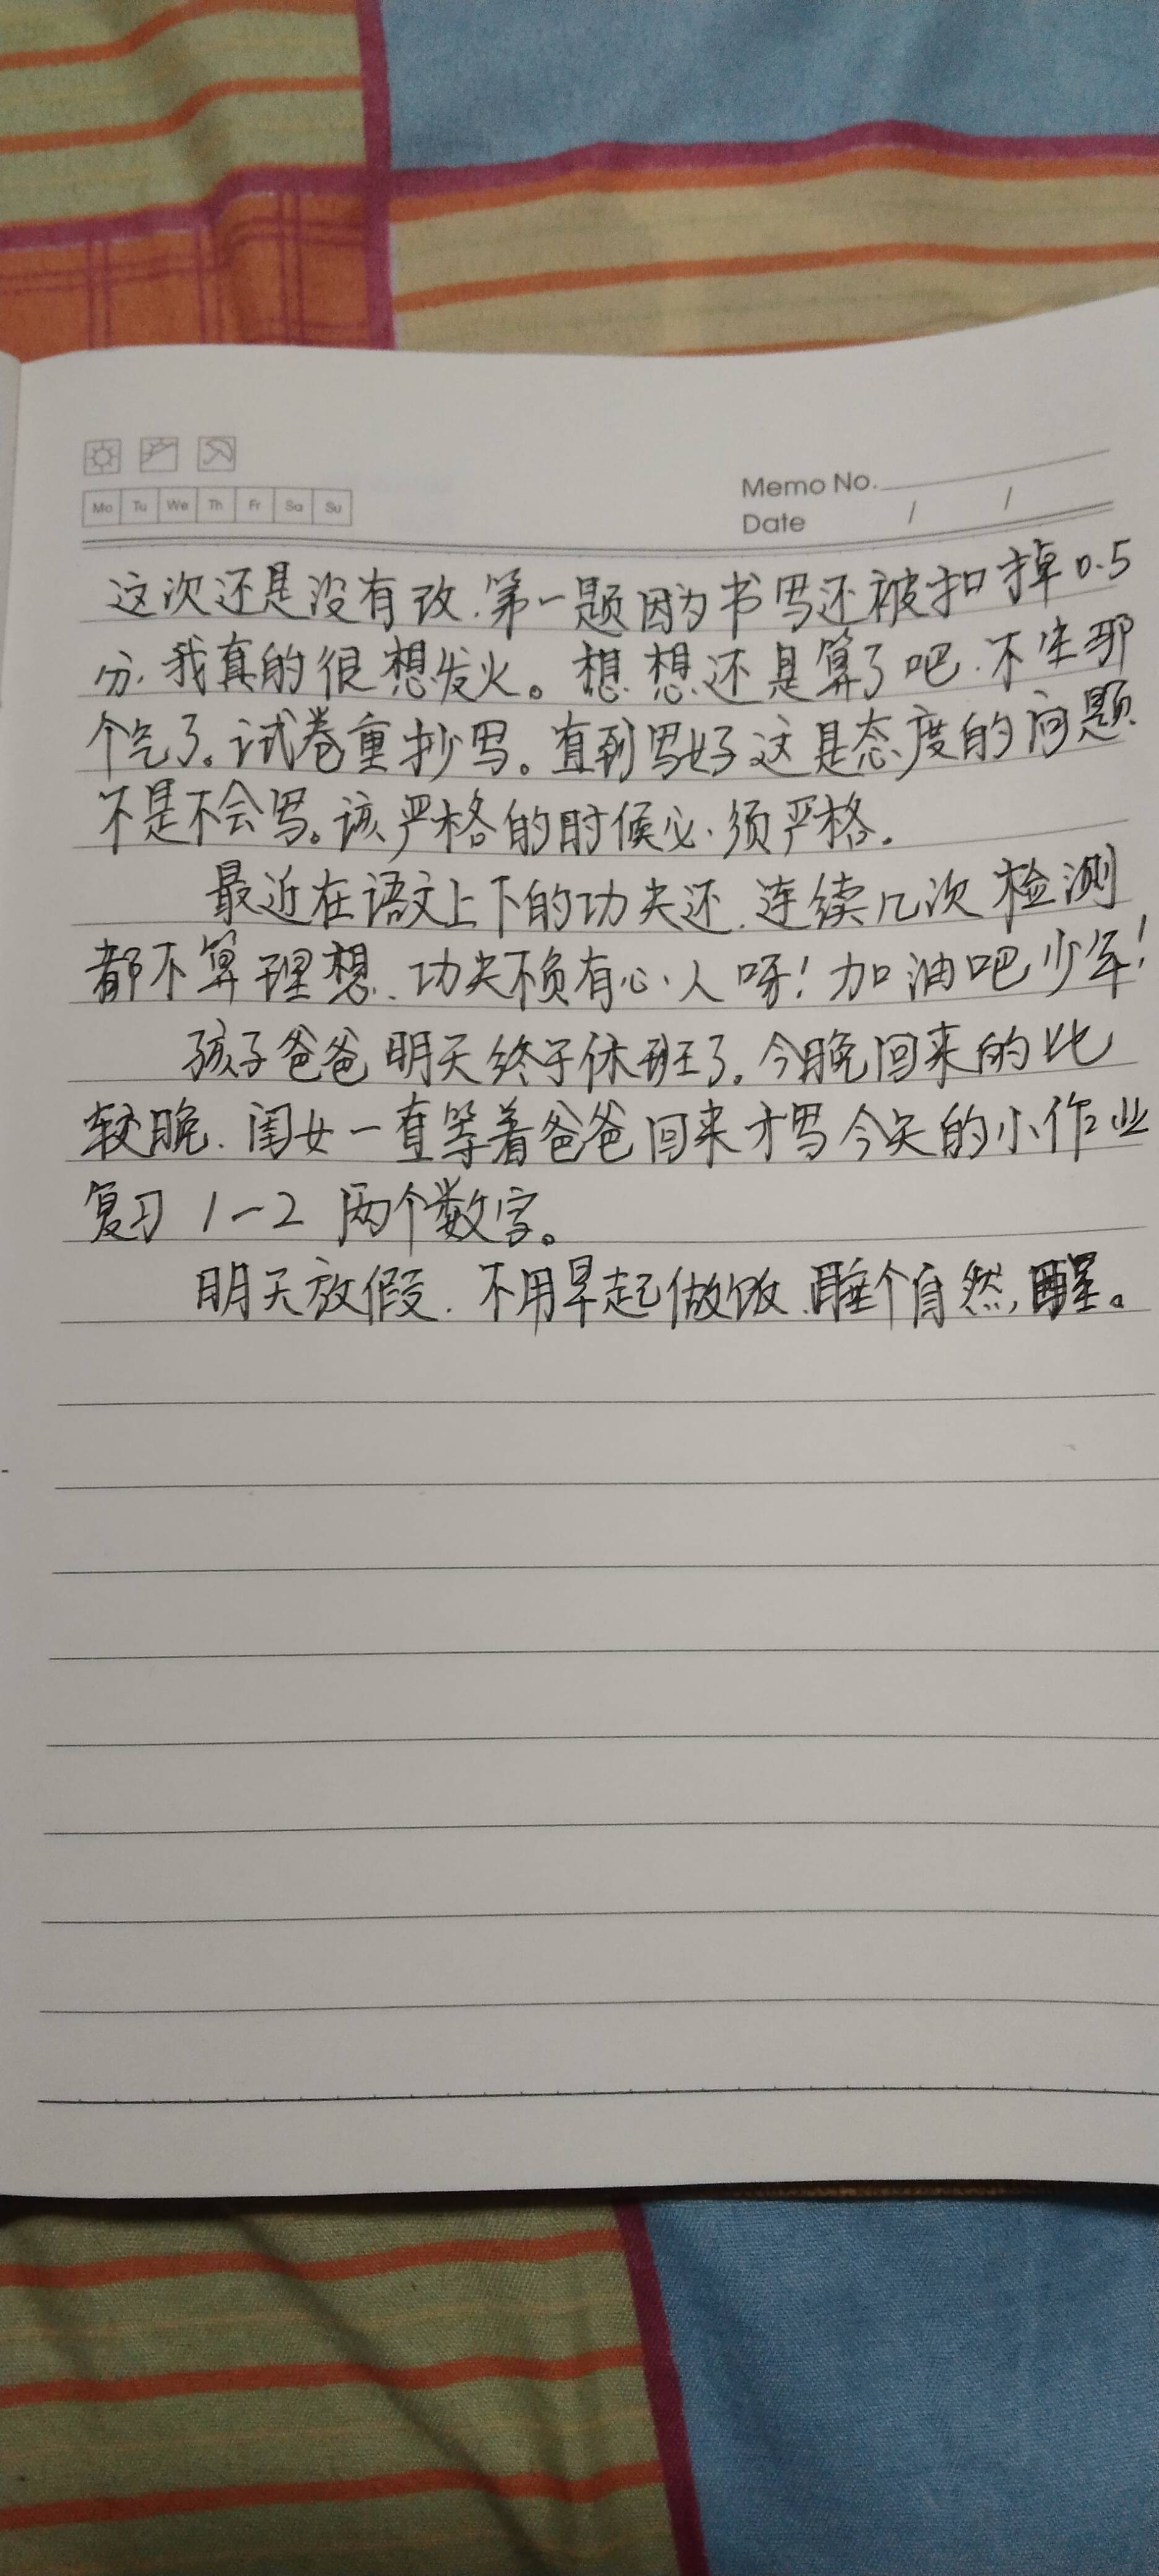 Mo Tu We Th Fr Sa Su
Memo No.
Date / /
这次还是没有改.第一题因为书写还被扣掉0.5
分.我真的很想发火。想想还是算了吧.不生那
个气了。试卷重抄写。直到写好这是态度的问题
不是不会写。该严格的时候必须严格.
最近在语文上下的功夫还.连续几次检测
都不算理想.功夫不负有心人呀!加油吧少年!
孩子爸爸明天终于休班了.今晚回来的比
较晚.闺女一直等着爸爸回来才写今天的小作业
复习1-2两个数字。
明天放假.不用早起做饭.睡个自然醒。